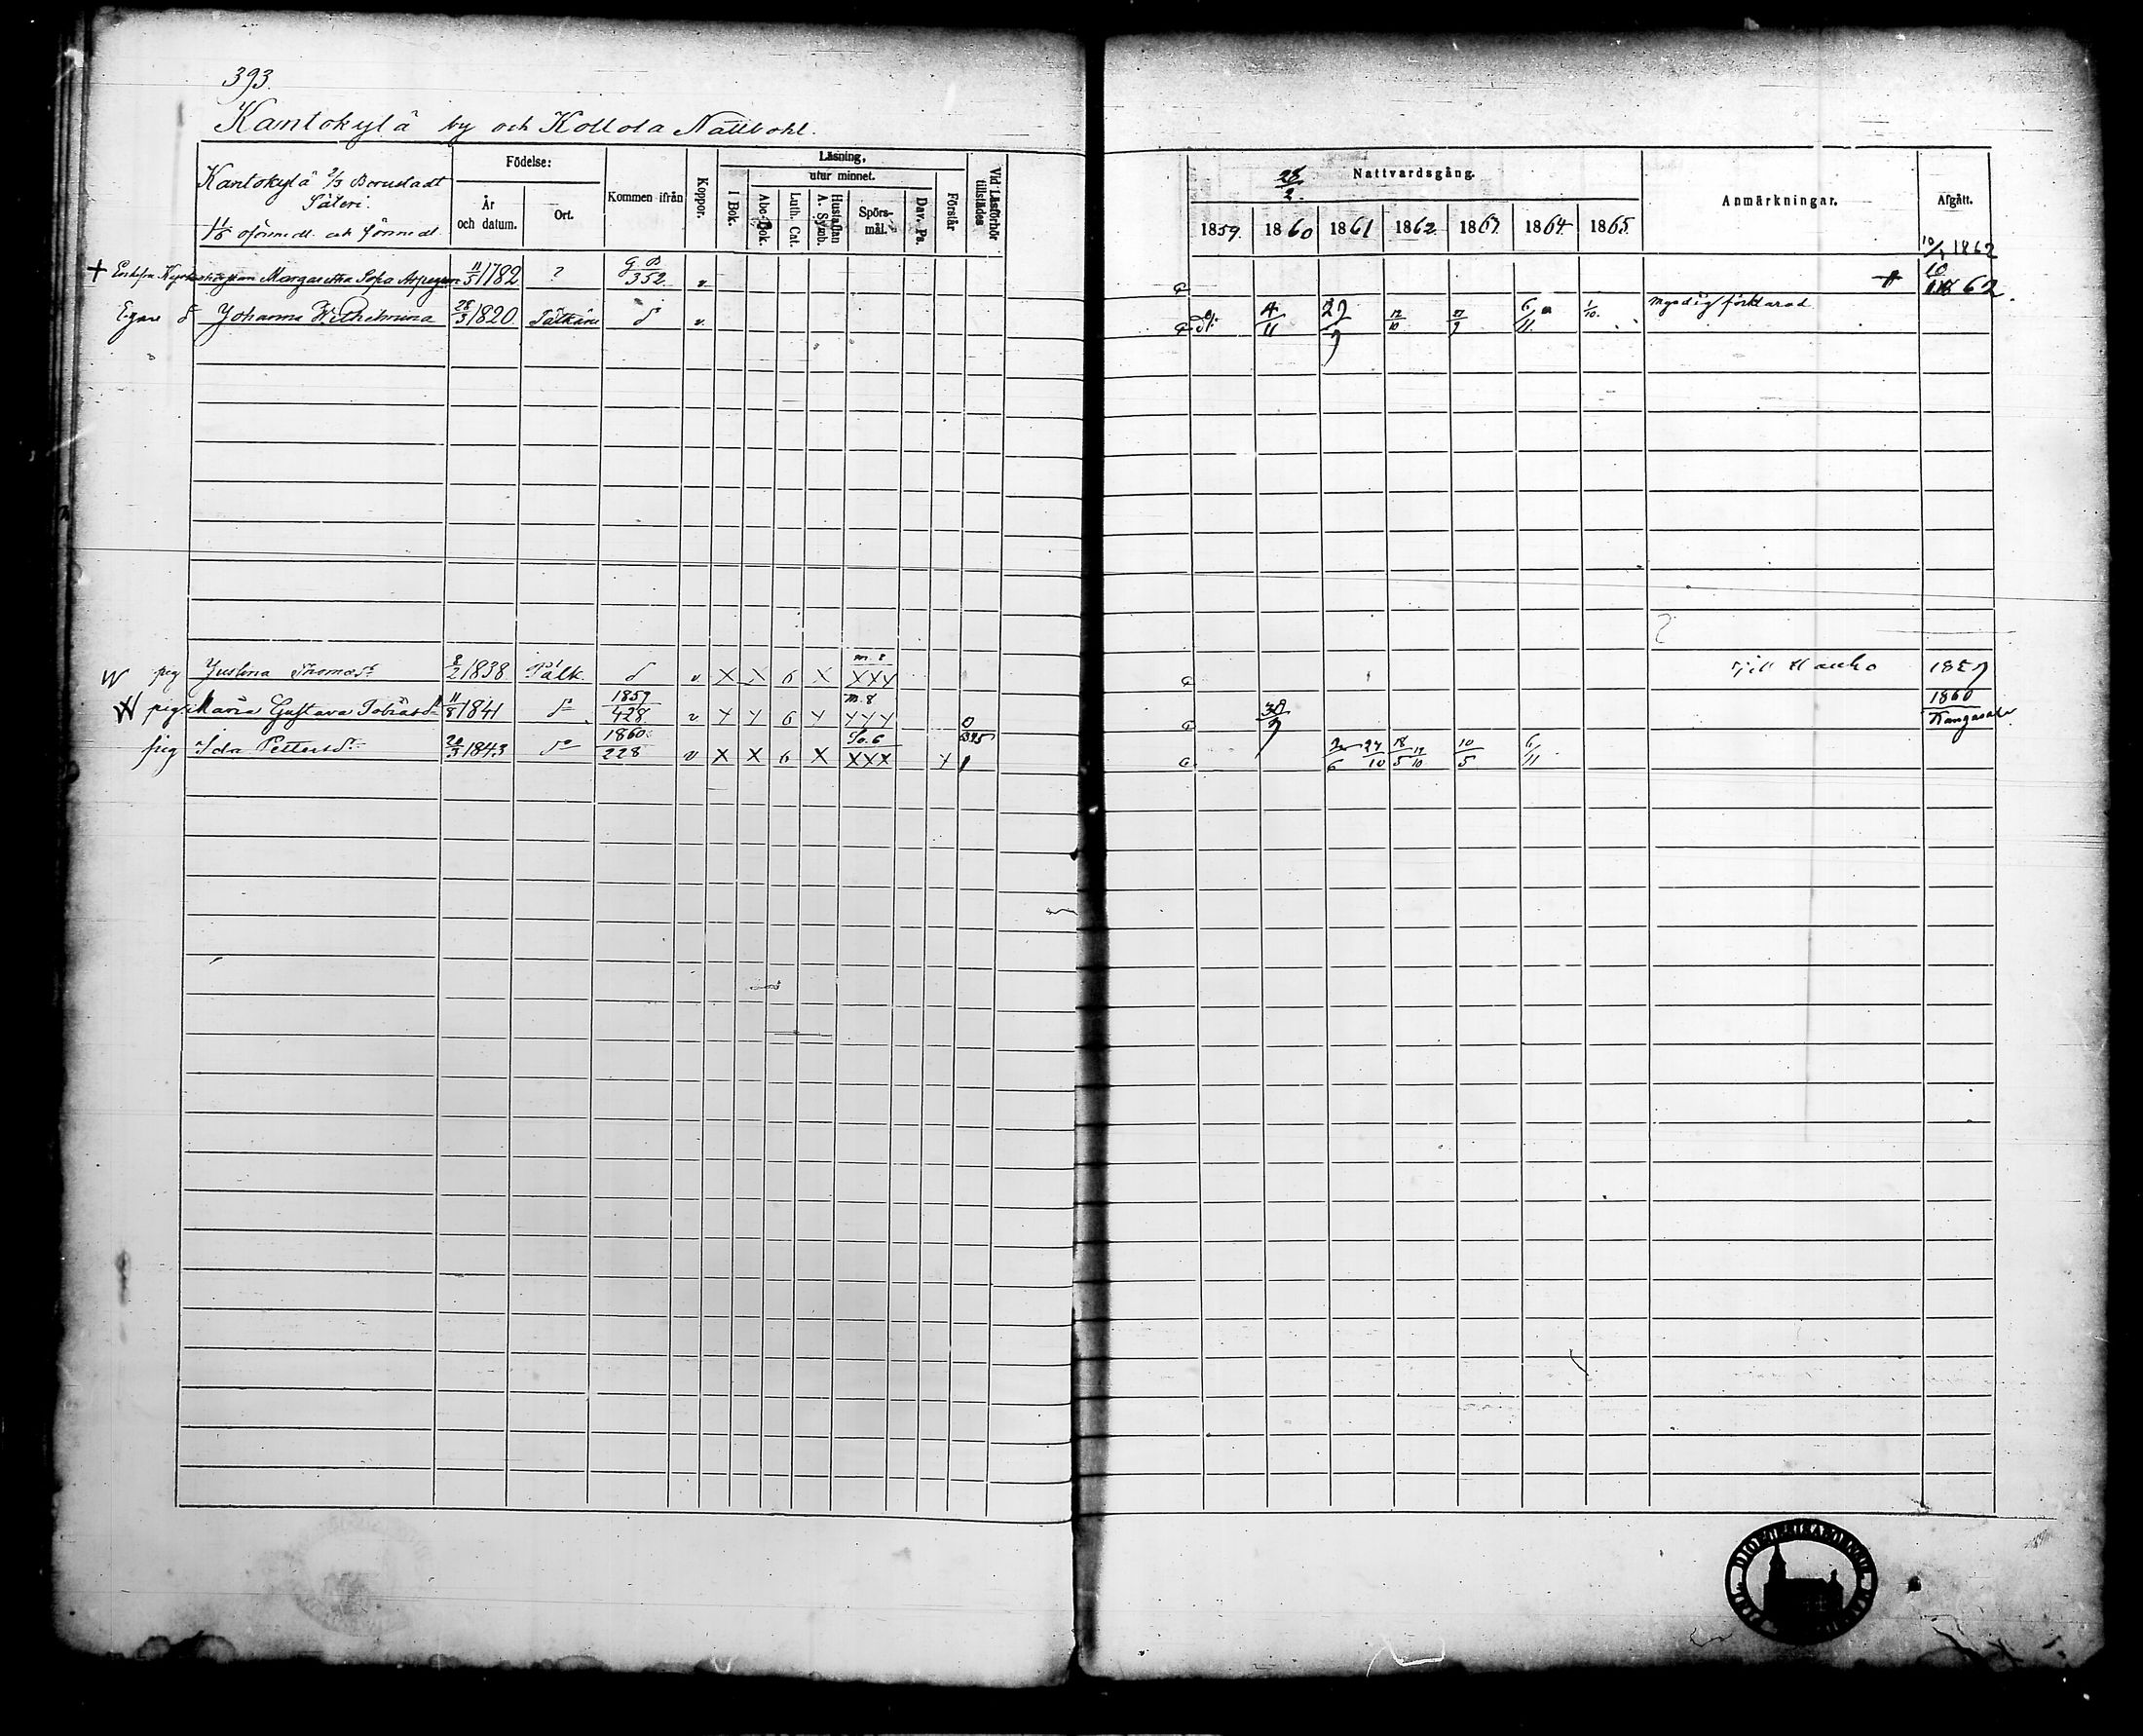 393.
Kantokylä by och Kollola Nattbohl.
Kantokylä 2/3 Borustadt
Säteri.
Födelse:
År och datum.
Ort.
Kommen ifrån
Koppor.
Läsning,
utur minnet.
I Bok.
Abc-Bok.
Luth. Cat.
Hustaflan A. Symb.
Spörs-mål.
Dav. Ps.
Förstår
Vid Läsförhör tillstädes
28/2
Nattvardsgång.
1859. 1860 1861 1862 1863 1864 1865.
Anmärkningar.
Afgått.
10/1 1862
+ Margaretha Sofia 11/5 1782 ? G B 352 v. + 62.
Egare d° Johanna Wilhelmina 28/3 1820 Pälkäne d° v. 4/11 27/9 12/10 27/9 6/11 1/10. myndig förklarad
W pig Justina Thomasd° 8/2 1838 Pälk. d° v X X 6 X m. 8 XXX Till Hauho 1859
W pig Maria Gustava Tobiasd° 11/8 1841 d° 1859 428 v Y Y 6 Y m. 8 YYY 0 30/9 1860 Kangasala
pig Ida Pettersd° 20/3 1843 d° 1860 228 v X X 6 X So. 6 XXX Y 395 2/6 27/10 18/5 12/10 10/5 6/11